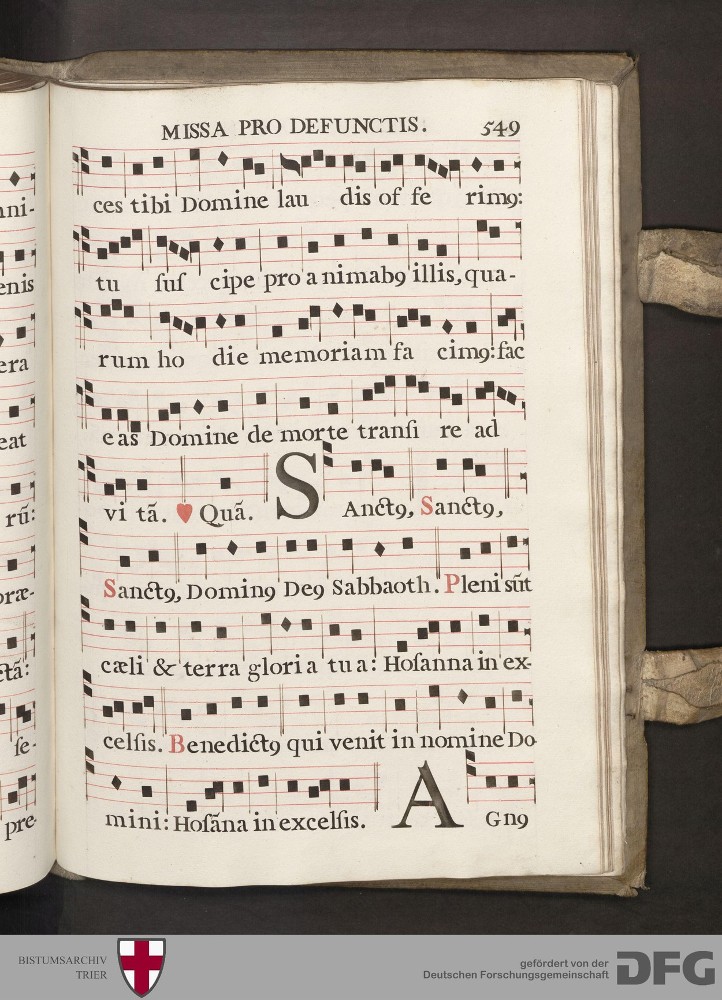 MISSA PRO DEFUNCTIS. 549
ces tibi Domine lau dis of fe rim9:
tu ſuſ cipe pro animab9 illis, qua-
rum ho die memoriam fa cim9: fac
eas Domine de morte tranſi re ad
vi tã. Quã. SAnct9, Sanct9,
Sanct9, Domin9 De9 Sabbaoth. Pleni sũt
cæli & terra gloria tua: Hoſanna in ex-
celſis. Benedict9 qui venit in nomine Do
mini: Hoſãna in excelſis. AGn9
nni-
enis
era
eat
rũ:
oræ-
ctã:
ſe-
pre-
BISTUMSARCHIV
TRIER
gefördert von der
Deutschen Forschungsgemeinschaft
DFG